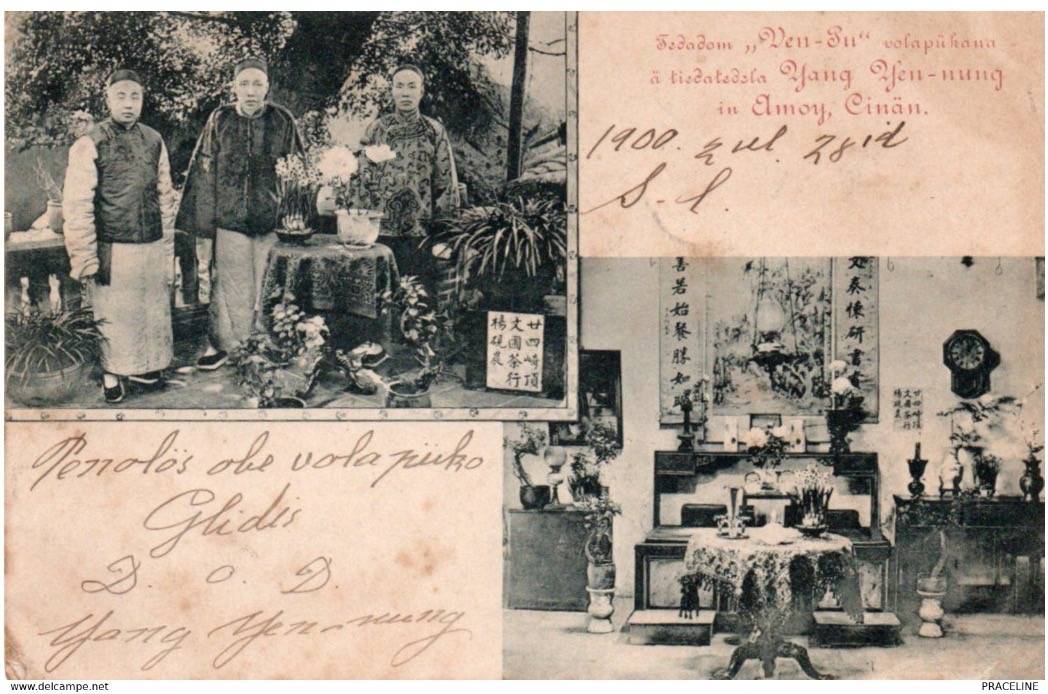 Tedadom „Ven-Tu“ volapükana
ä tiedatedsla Yang Yen-nung
in Amoy, Cinän.
1900. yul. 28id
S-l.
廿四崎頂
文圃茶行
楊硯農
善若始餐勝如
文奏悚研書
廿四崎頂
文圃茶行
楊硯農
Penolös obe volapüko
Glidis
D. o. D.
Yang Yen-nung
www.delcampe.net
PRACELINE